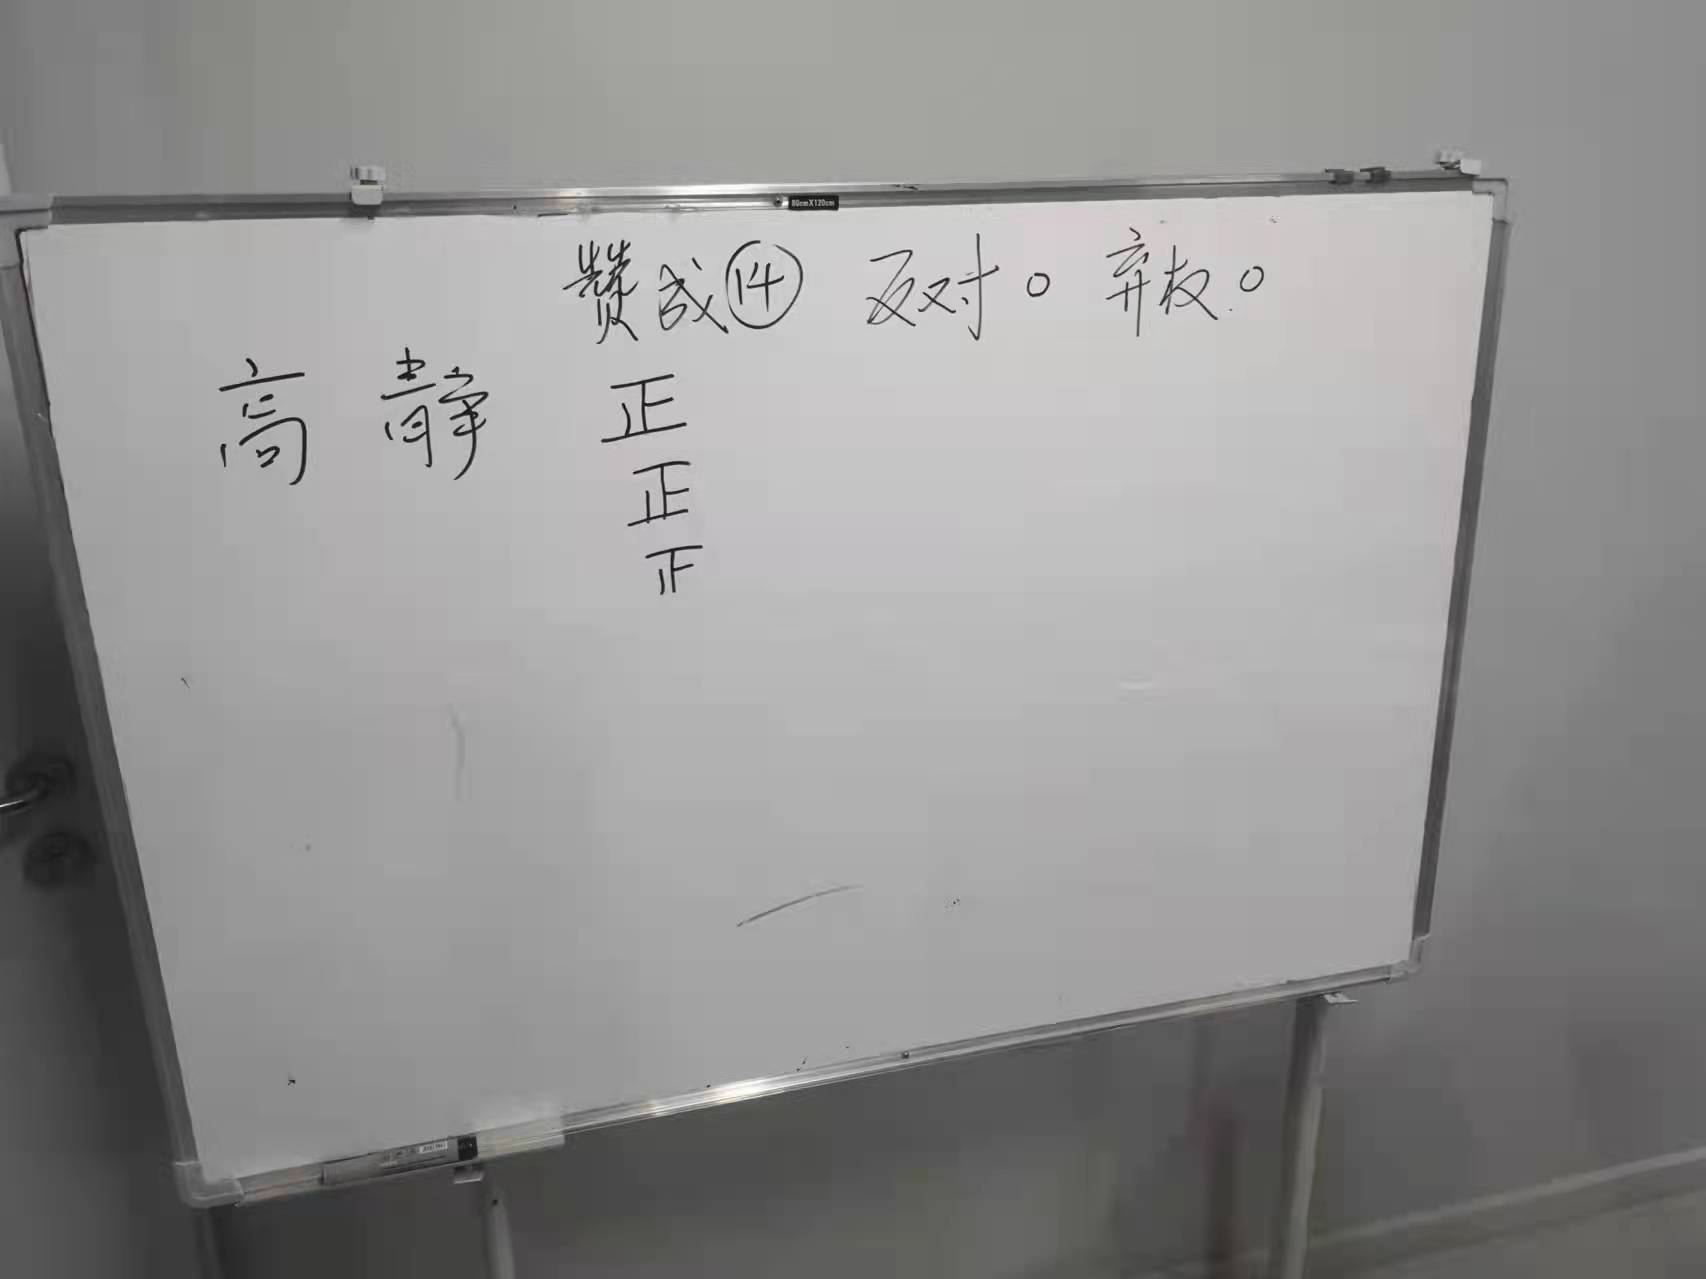 80cmX120cm
赞成⑭ 反对0 弃权.0
高静 正
正
正